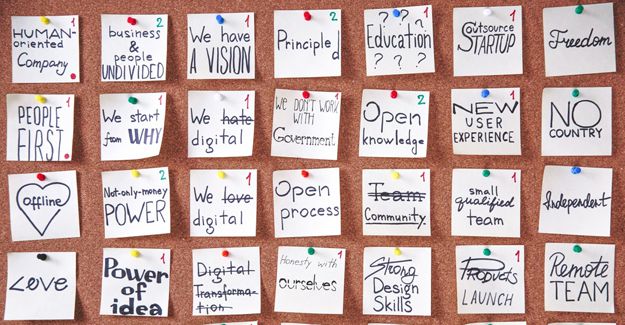 1
HUMAN-
oriented
Company
2
business
&
people
UNDIVIDED
1
We have
A VISION
Principled
1
? ? ?
Education
? ? ?
1
Outsource
STARTUP
Freedom
1
PEOPLE
FIRST.
1
We start
from WHY
1
We hate
digital
1
We DON'T WORK
WITH
Government
2
Open
knowledge
1
NEW
USER
EXPERIENCE
NO
COUNTRY
offline
2
Not-only-money
POWER
1
We love
digital
1
Open
process
1
Team
Community
1
small
qualified
team
Independent
Love
1
Power
of
idea
1
Digital
Transforma-
tion
1
Honesty with
ourselves
Strong
Design
Skills
1
PRODUCTS
LAUNCH
Remote
TEAM